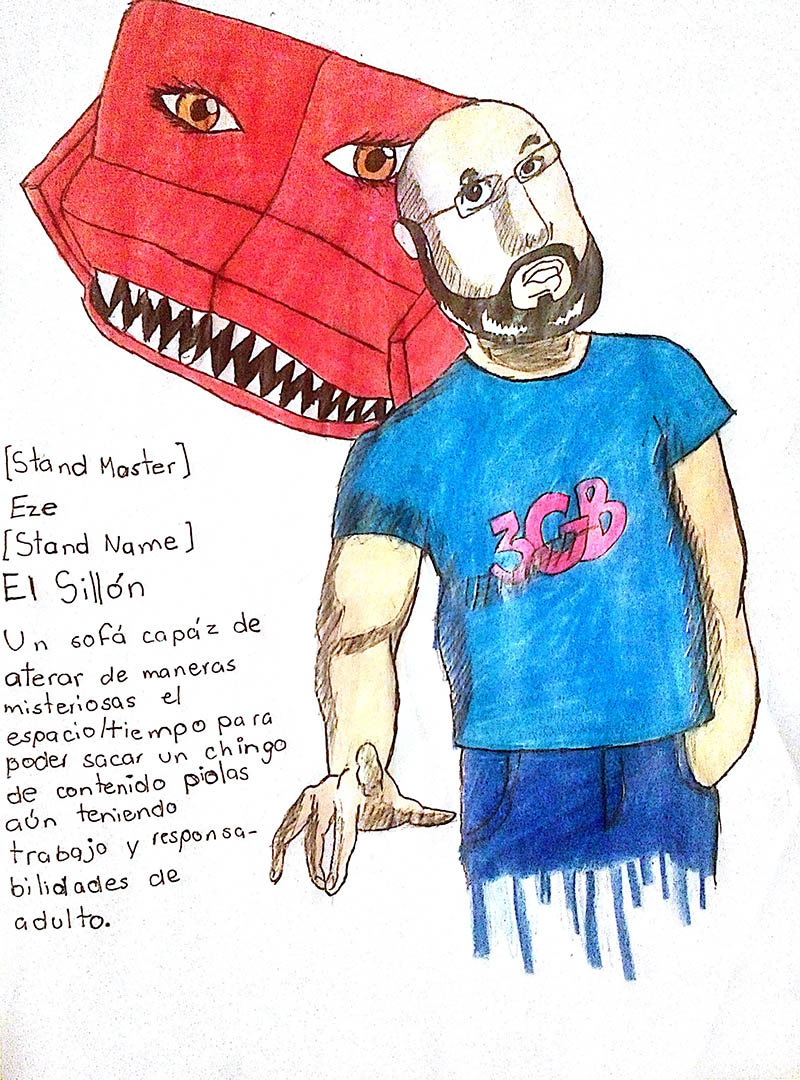 [Stand Master]
Eze
[Stand Name]
El Sillón
Un sofá capáz de
aterar de maneras
misteriosas el
espacio/tiempo para
poder sacar un chingo
de contenido piolas
aún teniendo
trabajo y responsa-
bilidades de
adulto.
3GB